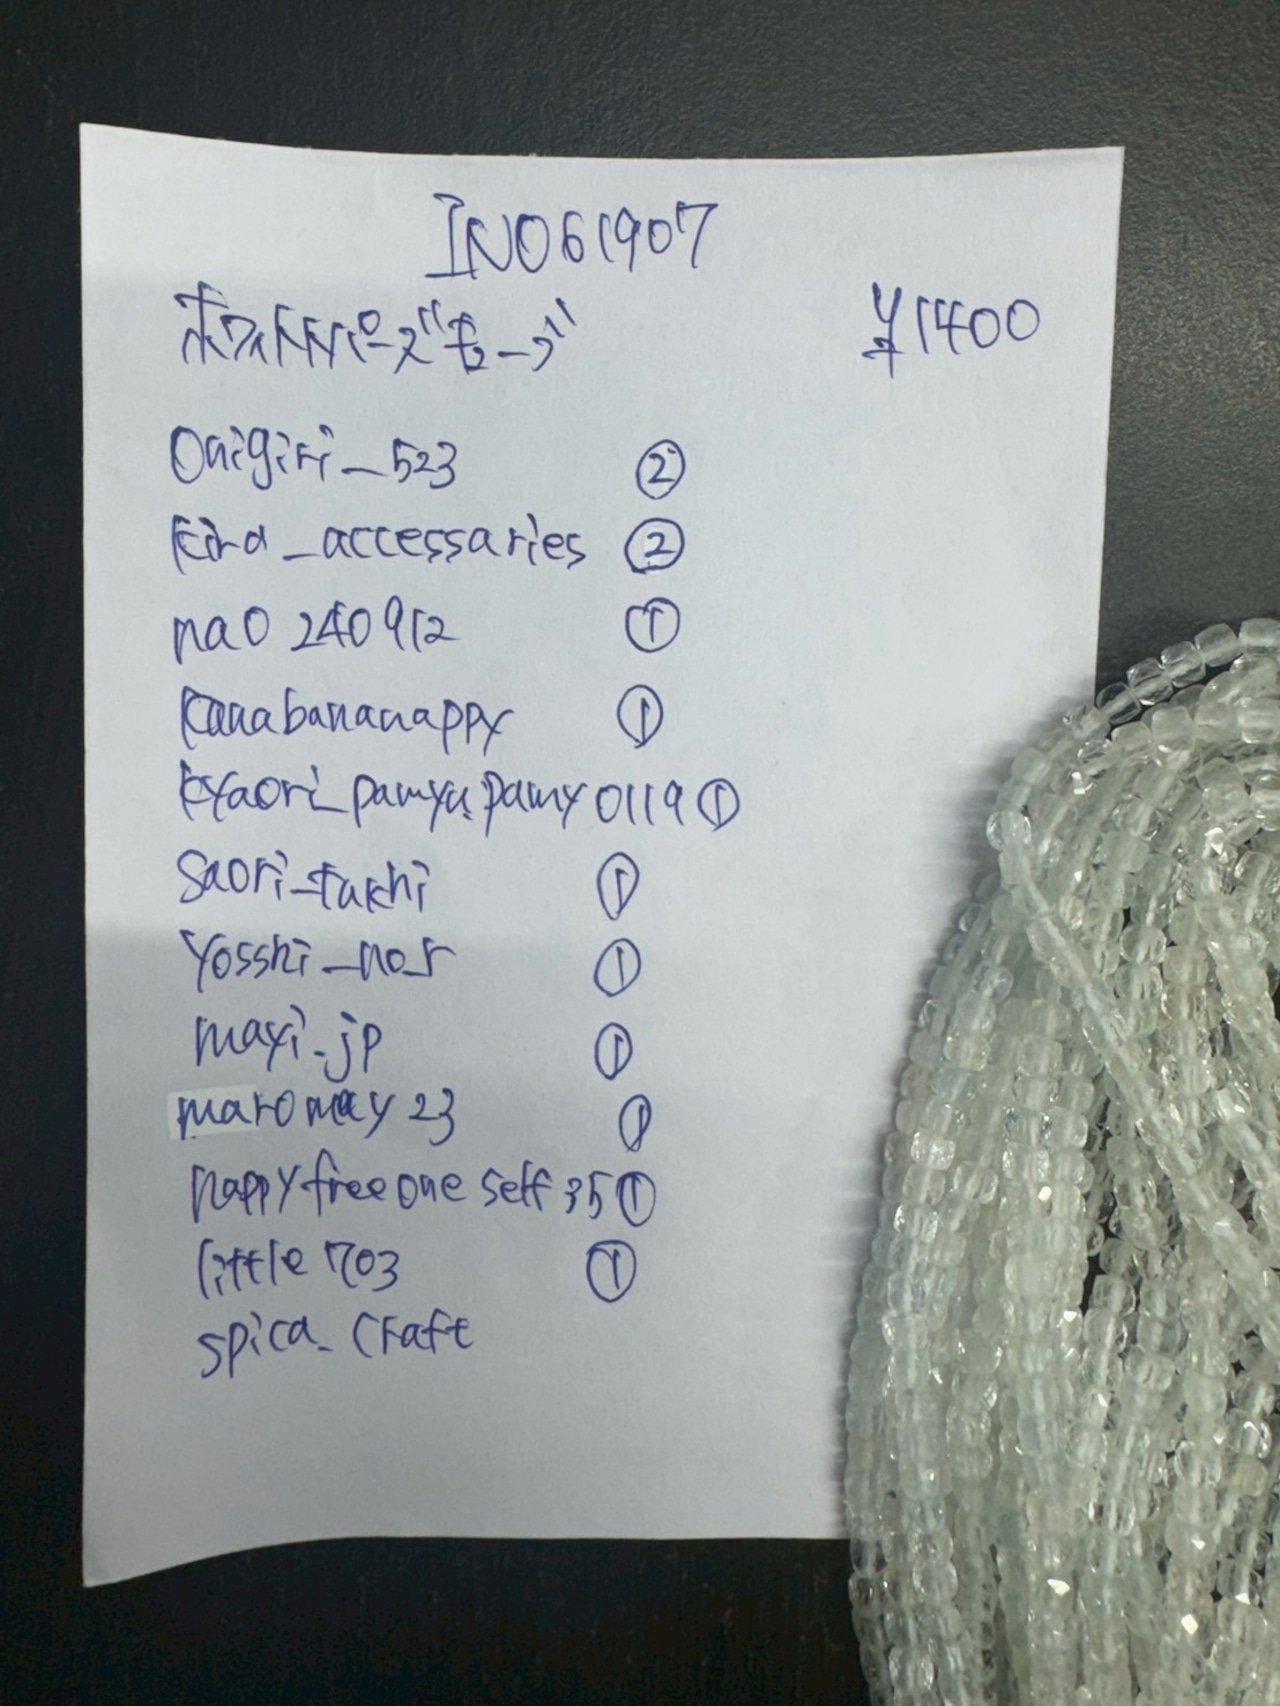 INO61907
ホワイトトパーズキューブ ¥1400
Onigiri_523 ②
kira_accessaries ②
nao 240912 ①
kanabananappy ①
kyaori_pamyu.pamy0119 ①
saori_takhi ①
yosshi_no_r ①
mayi.jp ①
maromay23 ①
happyfreeoneself35 ①
little703 ①
spica_craft